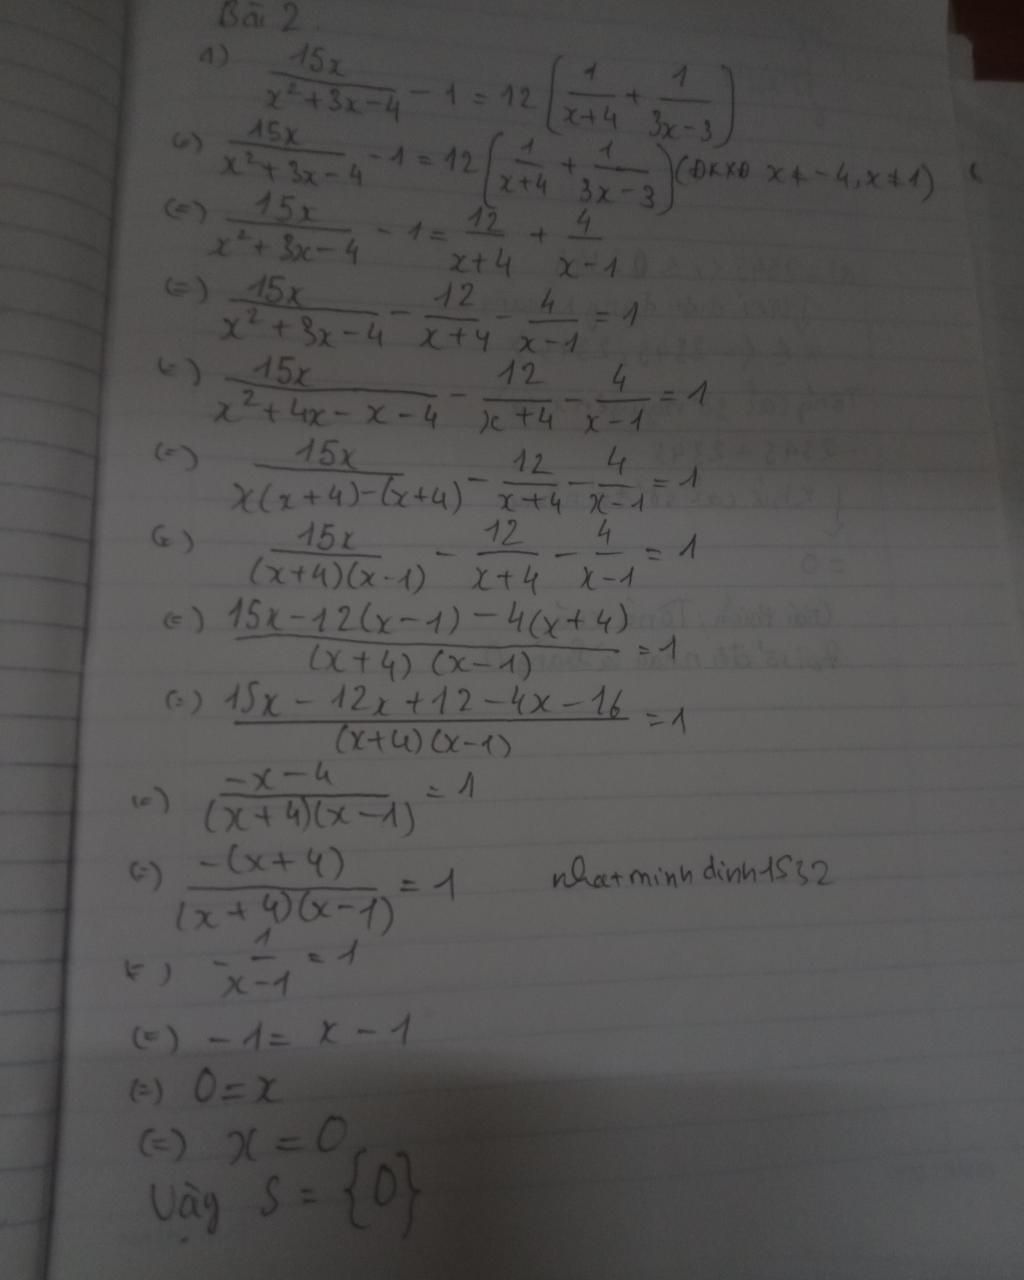 Bài 2.
1) 15x/(x²+3x-4) - 1 = 12 (1/(x+4) + 1/(3x-3))
(=) 15x/(x²+3x-4) - 1 = 12 (1/(x+4) + 1/(3x-3)) (ĐKXĐ x ≠ -4, x ≠ 1)
(=) 15x/(x²+3x-4) - 1 = 12/(x+4) + 4/(x-1)
(=) 15x/(x²+3x-4) - 12/(x+4) - 4/(x-1) = 1
(=) 15x/(x²+4x-x-4) - 12/(x+4) - 4/(x-1) = 1
(=) 15x/(x(x+4)-(x+4)) - 12/(x+4) - 4/(x-1) = 1
(=) 15x/((x+4)(x-1)) - 12/(x+4) - 4/(x-1) = 1
(=) (15x-12(x-1)-4(x+4))/((x+4)(x-1)) = 1
(=) (15x-12x+12-4x-16)/((x+4)(x-1)) = 1
(=) (-x-4)/((x+4)(x-1)) = 1
(=) -(x+4)/((x+4)(x-1)) = 1 nhatminhdinh1532
(=) -1/(x-1) = 1
(=) -1 = x-1
(=) 0 = x
(=) x = 0
Vậy S = {0}